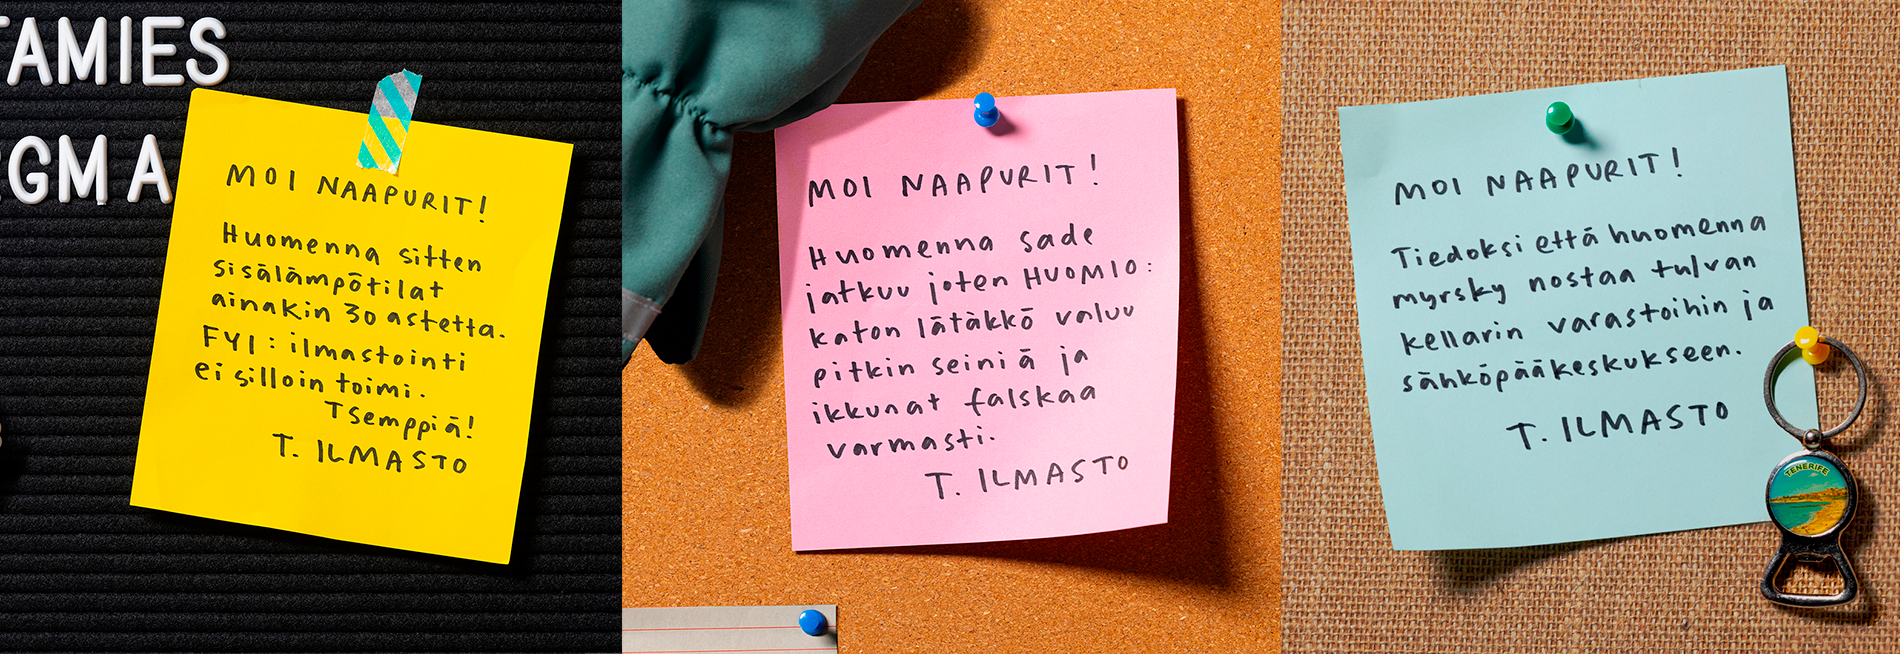 TAMIES
GMA
MOI NAAPURIT!
Huomenna sitten
sisälämpötilat
ainakin 30 astetta.
FYI: ilmastointi
ei silloin toimi.
Tsemppiä!
T. ILMASTO
MOI NAAPURIT!
Huomenna sade
jatkuu joten HUOMIO:
katon lätäkkö valuu
pitkin seiniä ja
ikkunat falskaa
varmasti.
T. ILMASTO
MOI NAAPURIT!
Tiedoksi että huomenna
myrsky nostaa tulvan
kellarin varastoihin ja
sähköpääkeskukseen.
T. ILMASTO
TENERIFE